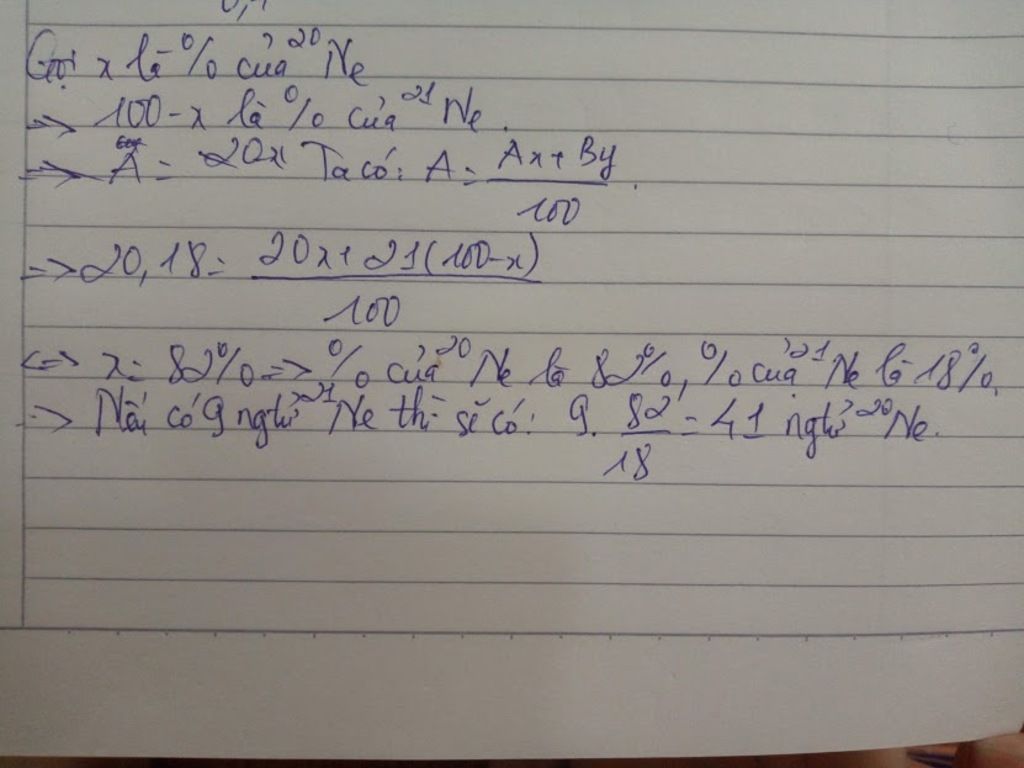 Gọi x là % của ²⁰Ne
=> 100-x là % của ²¹Ne.
=> Ā = 20x Ta có: A = (Ax + By)/100.
=> 20,18 = (20x + 21(100-x))/100
<=> x = 82% => % của ²⁰Ne là 82%, % của ²¹Ne là 18%.
=> Nếu có 9 ngtử ²¹Ne thì sẽ có: 9. 82/18 = 41 ngtử ²⁰Ne.